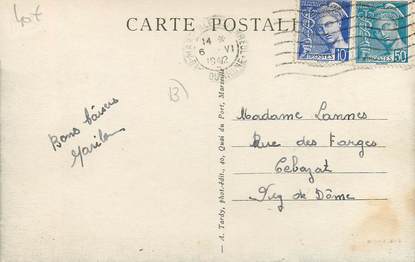 Lot
CARTE POSTALE
14 *
6 VI
1942
POSTES 10c
POSTES 50c
(B)
Bons baisers
Madame Lannes
Rue des Farges
Cebazat
Puy de Dôme
A. Tardy, phot.-édit., 40, Quai du Port, Marseille